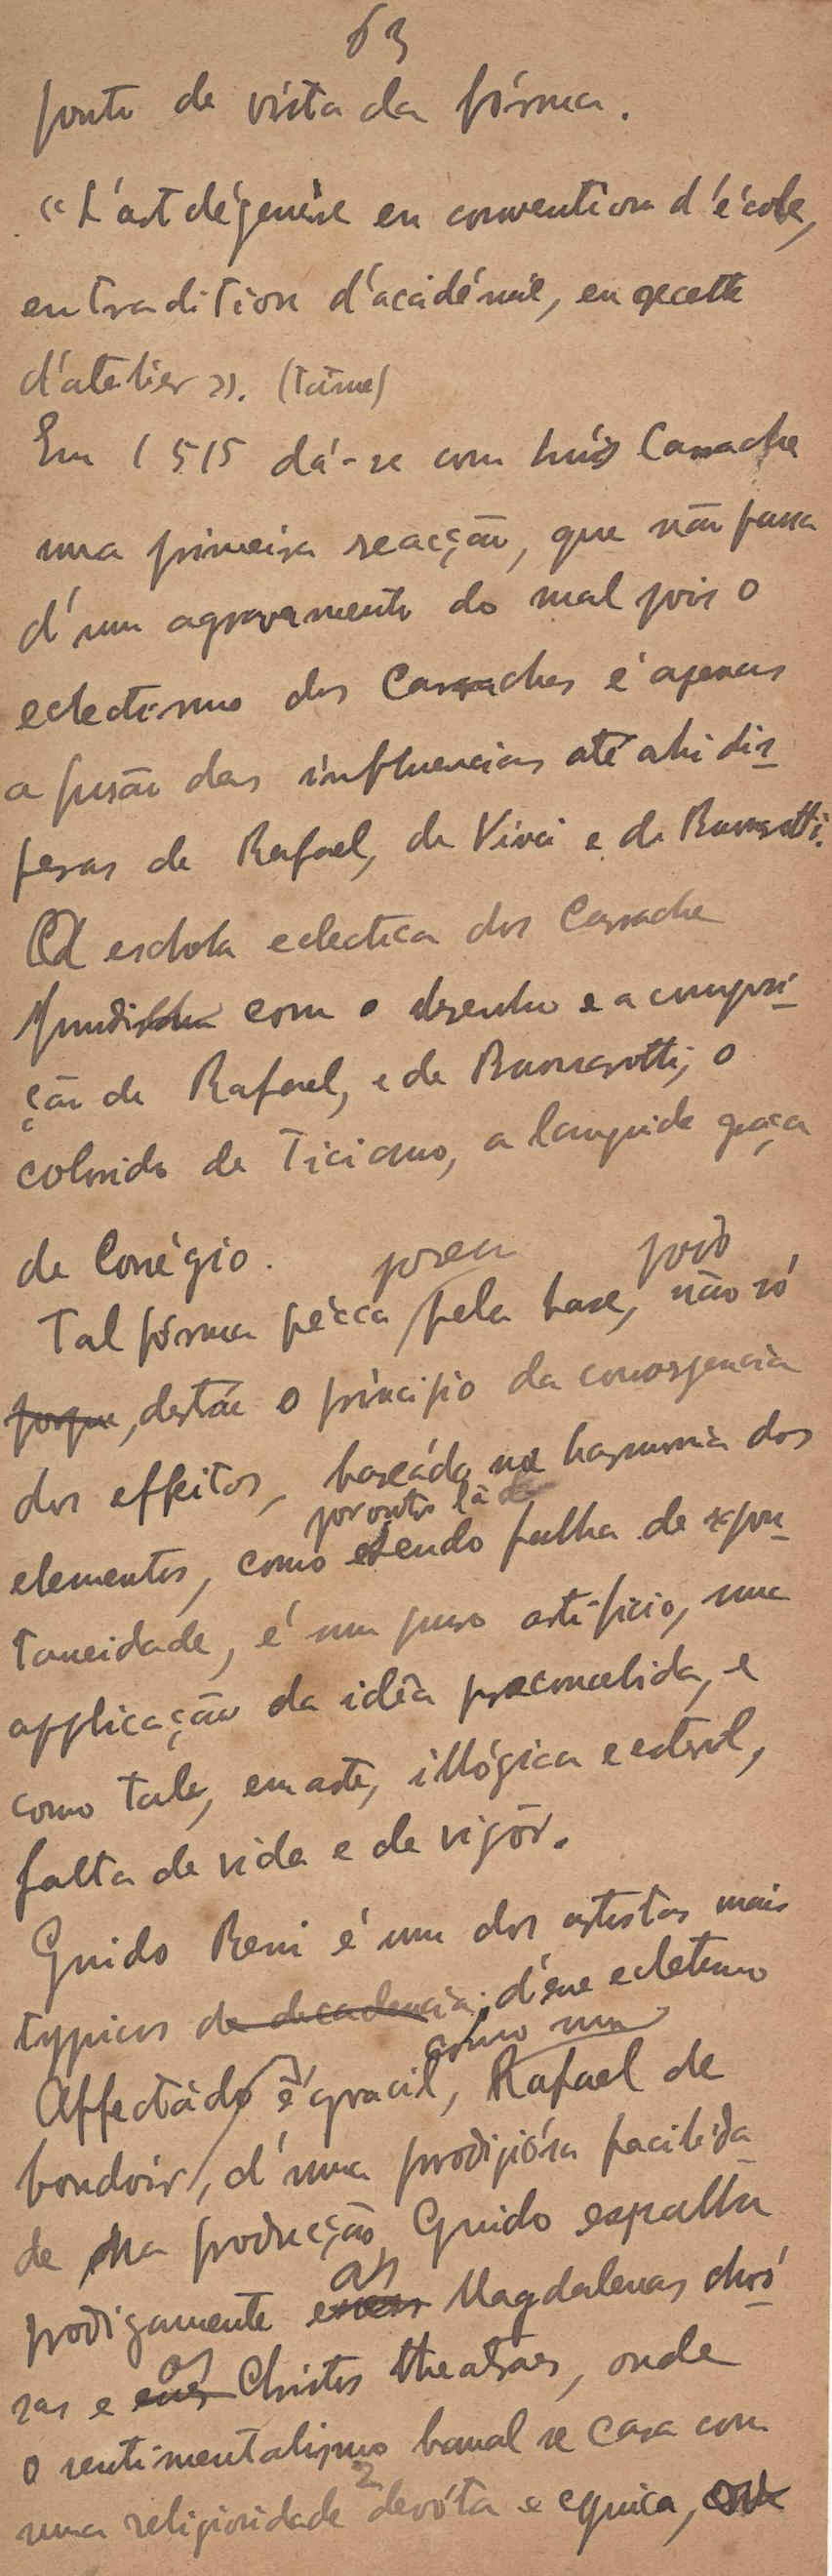 63
ponto de vista da fórma.
«L'art dégenére en convention d'école,
en tradition d'académie, en recette
d'atelier». (Taine)
Em 1515 dá-se com Luís Carrache
uma primeira reacção, que não passa
d'um agravamento do mal pois o
eclectismo dos Carraches é apenas
a fusão das influencias até ahi dis-
persas de Rafael, de Vinci e de Buonarotti.
A eschola eclectica dos Carrache
com o desenho e a composi-
ção de Rafael, e de Buonarotti; o
colorido de Ticiano, a languida graça
de Corrégio.
porem pois
Tal fórma pécca pela base, não só
porque, destróe o principio da convergencia
dos effeitos, baseádo na harmonia dos
por outro lado
elementos, como sendo falha de espon-
taneidade, é um puro artificio, uma
applicação da idêa preconcebida, e
como tal, em arte, illógica e esteril,
falta de vida e de vigôr.
Guido Reni é um dos artistas mais
typicos de decadencia d'esse ecletismo
como um
Affectádo e gracil, Rafael de
boudoir, d'uma prodigiósa facilida-
de na producção, Guido espalha
as
prodigamente esses Magdalenas choró-
os
sas e esses Christos theatraes, onde
o sentimentalismo banal se casa com
uma religiosidade devóta e equica,